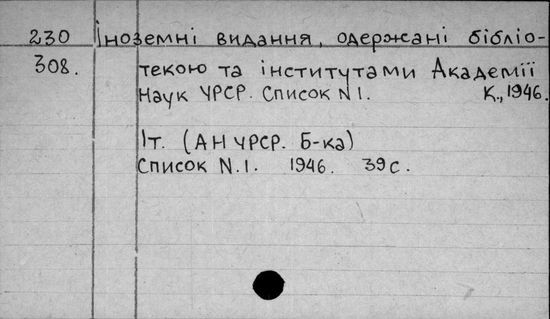 230 Іноземні видання, одержані бібліо-
308. текою та інститутами Академії
Наук УРСР. Список N 1. К., 1946.
1т. (АН УРСР. Б-ка)
Список N.1. 1946. 39 с.